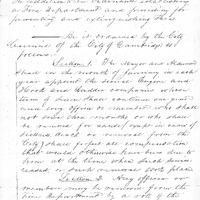 In addition to an Ordinance establishing
a Fire Department and providing for
preventing and extinguishing fires
Be it ordained by the City
Council of the City of Cambridge as
follows.
Section 1. The Mayor and Aldermen
shall in the month of January in each
year appoint the several Engine and
Hook and Ladder companies whose
term of service shall continue one year
and any officer or member who shall
not serve three months or who shall
be removed or
removal from the
City) shall forfeit all compensation
that would otherwise have been due to
from at the time when such service
ceased.
Section 2. Any officer or
member may be removed from the
Fire Department by a vote of the